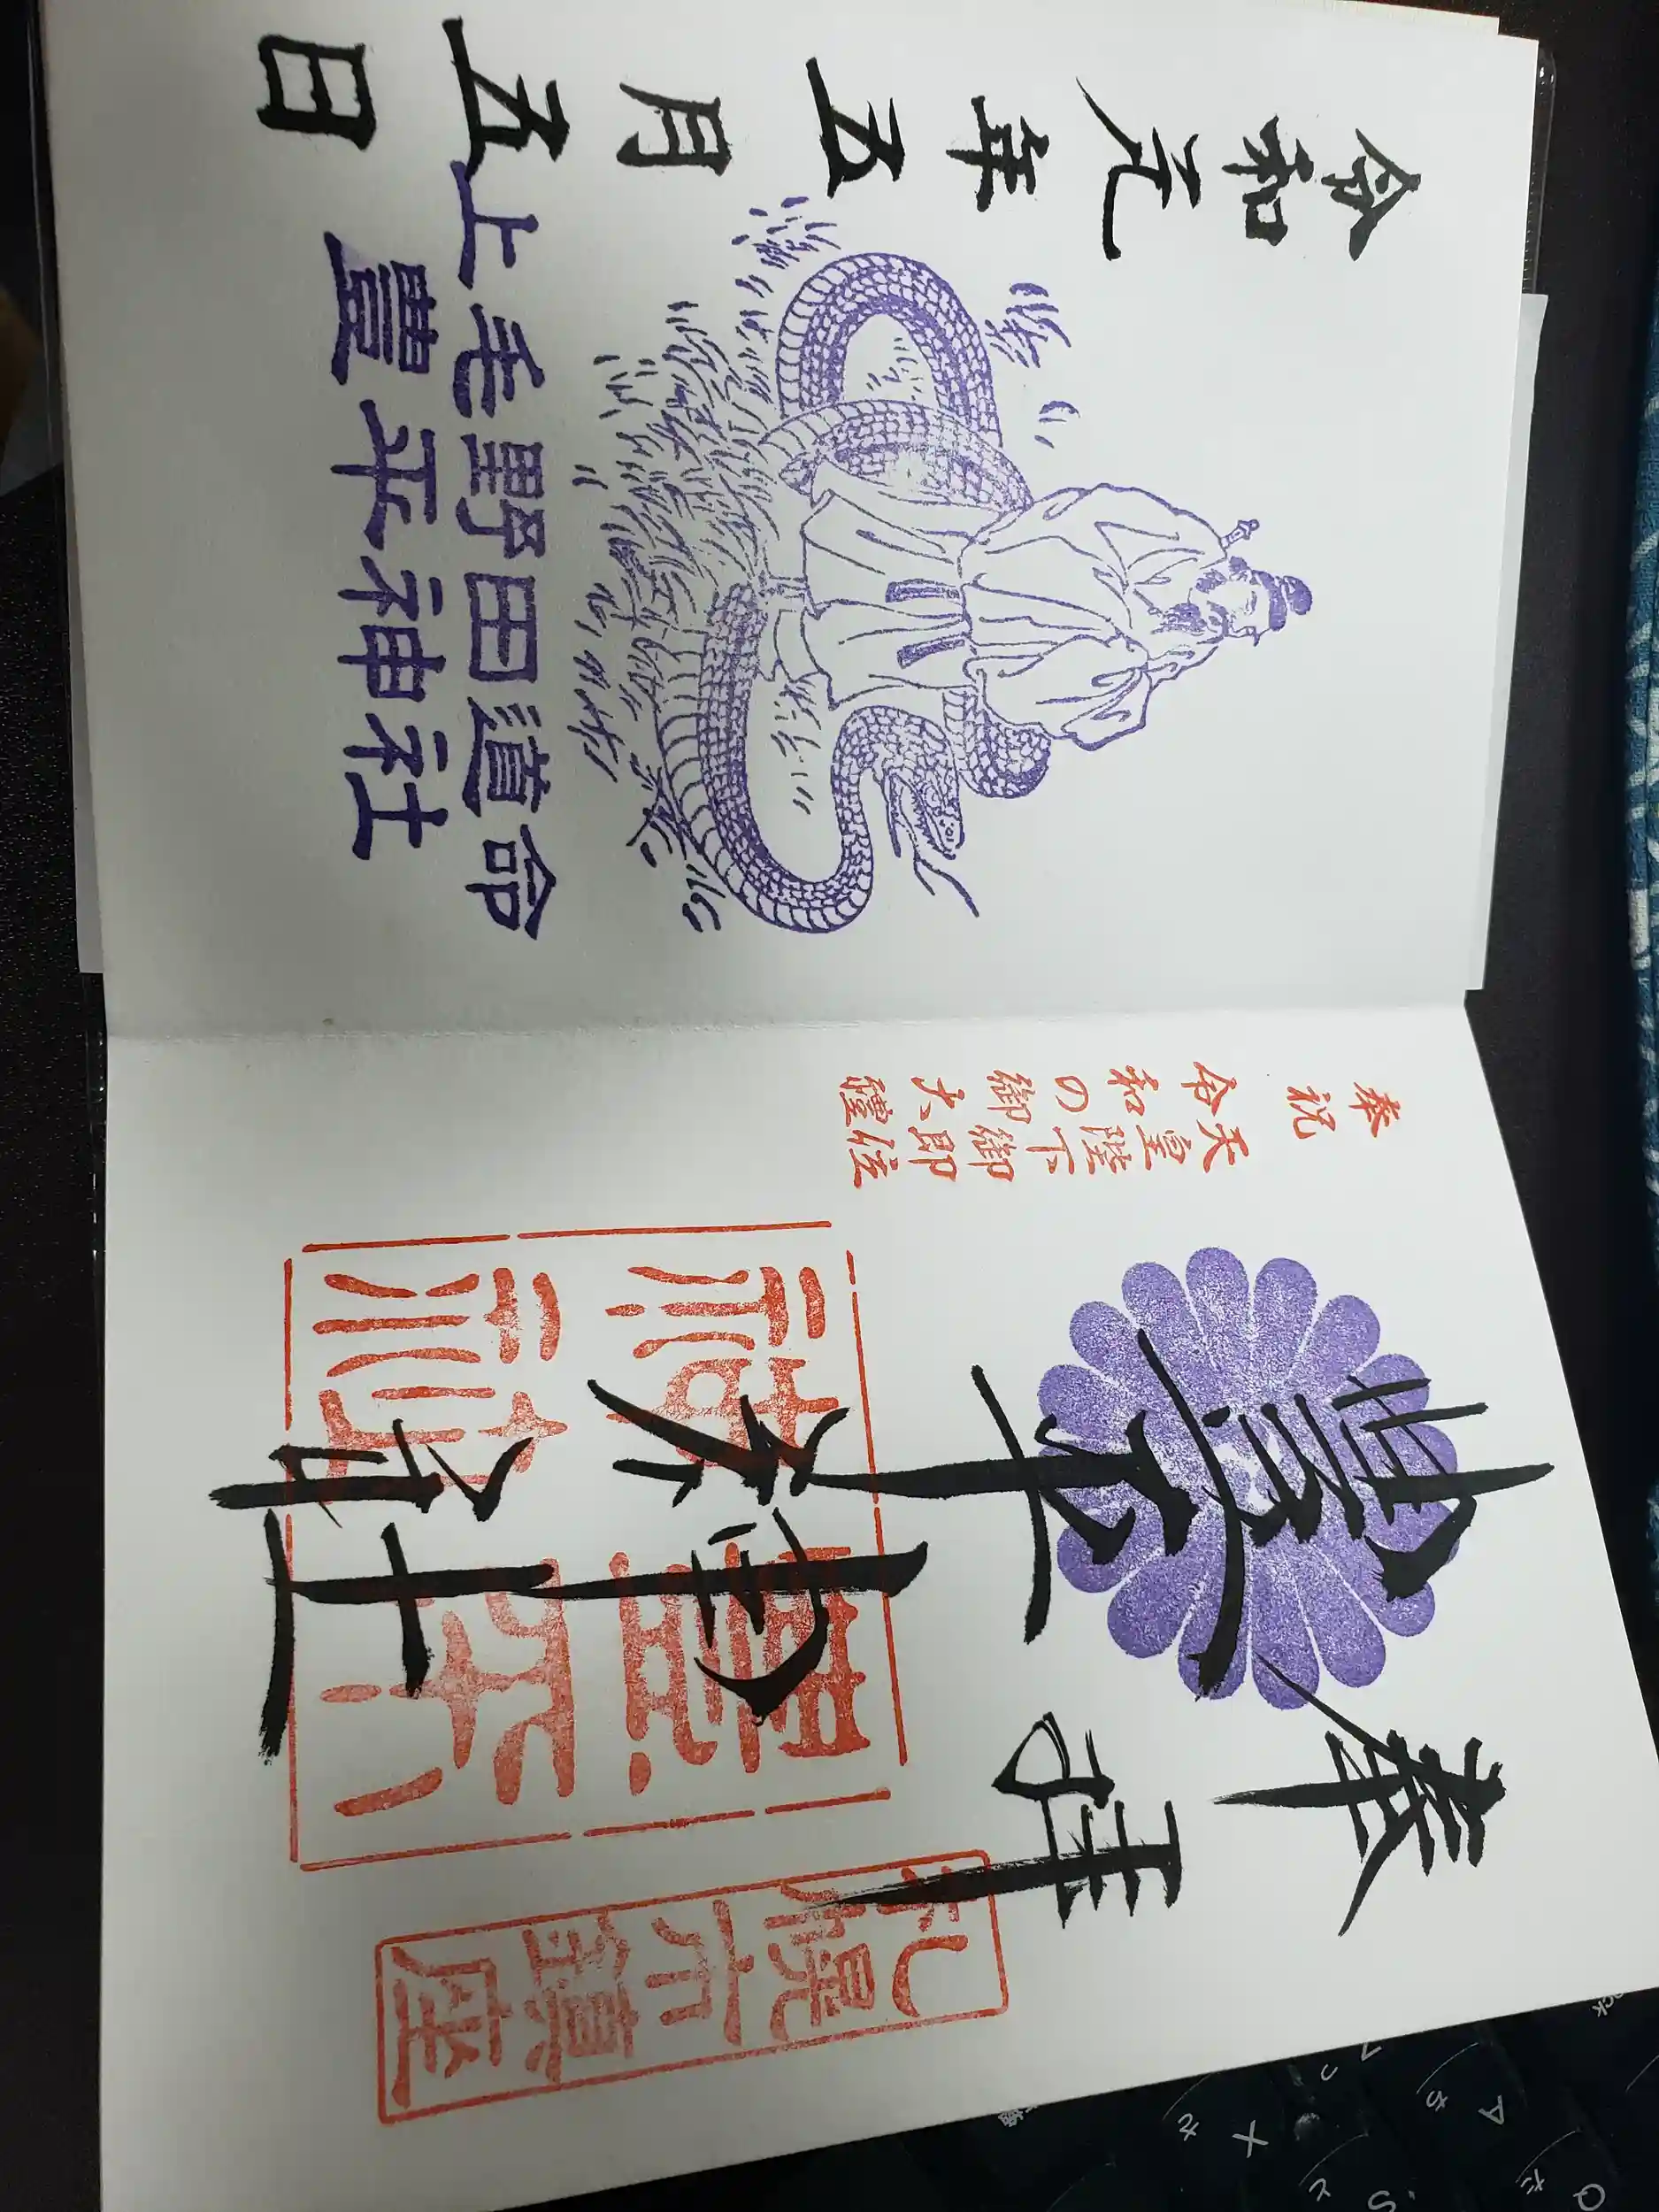 奉拝
札幌市鎮座
豐平神社
豐平
神社
奉祝
天皇陛下御即位
令和の御大禮
上毛野田道命
豐平神社
令和元年五月五日